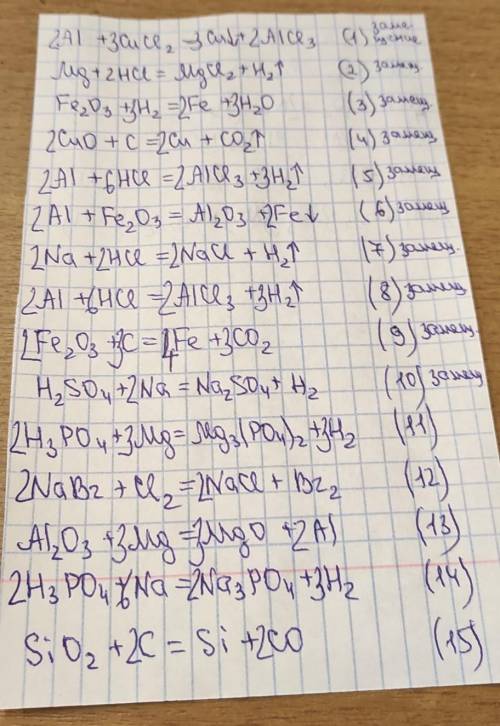 2Al + 3CuCl₂ → 3Cu↓ + 2AlCl₃ (1) заме-
щение
Mg + 2HCl = MgCl₂ + H₂↑ (2) замещ.
Fe₂O₃ + 3H₂ = 2Fe + 3H₂O (3) замещ.
2CuO + C = 2Cu + CO₂↑ (4) замещ
2Al + 6HCl = 2AlCl₃ + 3H₂↑ (5) замещ.
2Al + Fe₂O₃ = Al₂O₃ + 2Fe↓ (6) замещ.
2Na + 2HCl = 2NaCl + H₂↑ (7) замещ.
2Al + 6HCl = 2AlCl₃ + 3H₂↑ (8) замещ.
2Fe₂O₃ + 3C = 4Fe + 3CO₂ (9) замещ.
H₂SO₄ + 2Na = Na₂SO₄ + H₂ (10) замещ
2H₃PO₄ + 3Mg = Mg₃(PO₄)₂ + 3H₂ (11)
2NaBr + Cl₂ = 2NaCl + Br₂ (12)
Al₂O₃ + 3Mg = 3MgO + 2Al (13)
2H₃PO₄ + 6Na = 2Na₃PO₄ + 3H₂ (14)
SiO₂ + 2C = Si + 2CO (15)